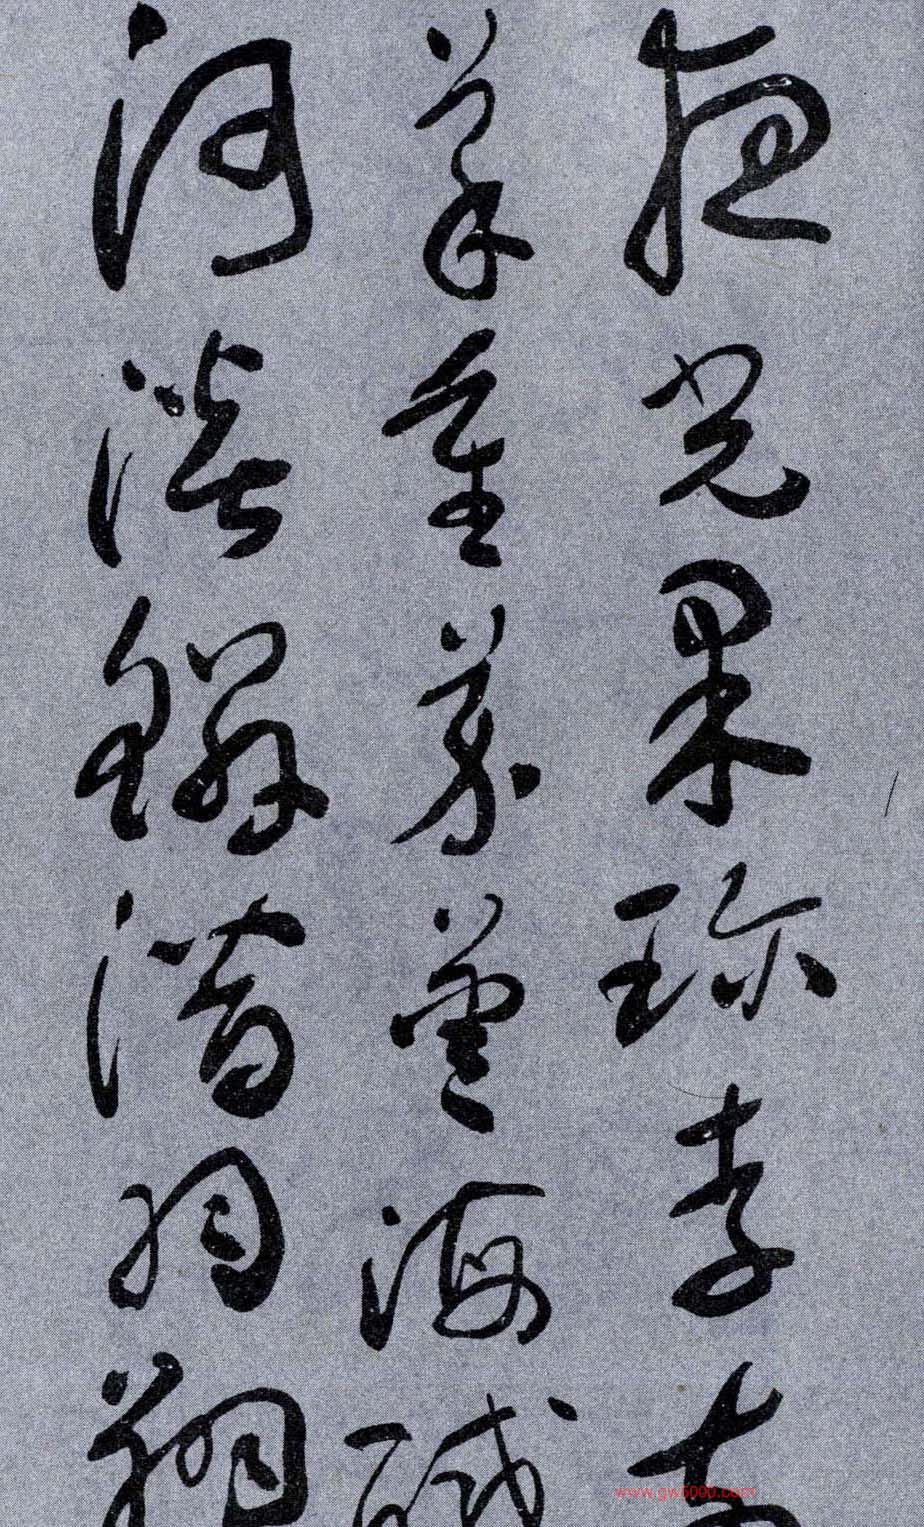 夜光果珍李柰
菜重芥薑海醎
河淡鱗潛羽翔
www.gw5000.com